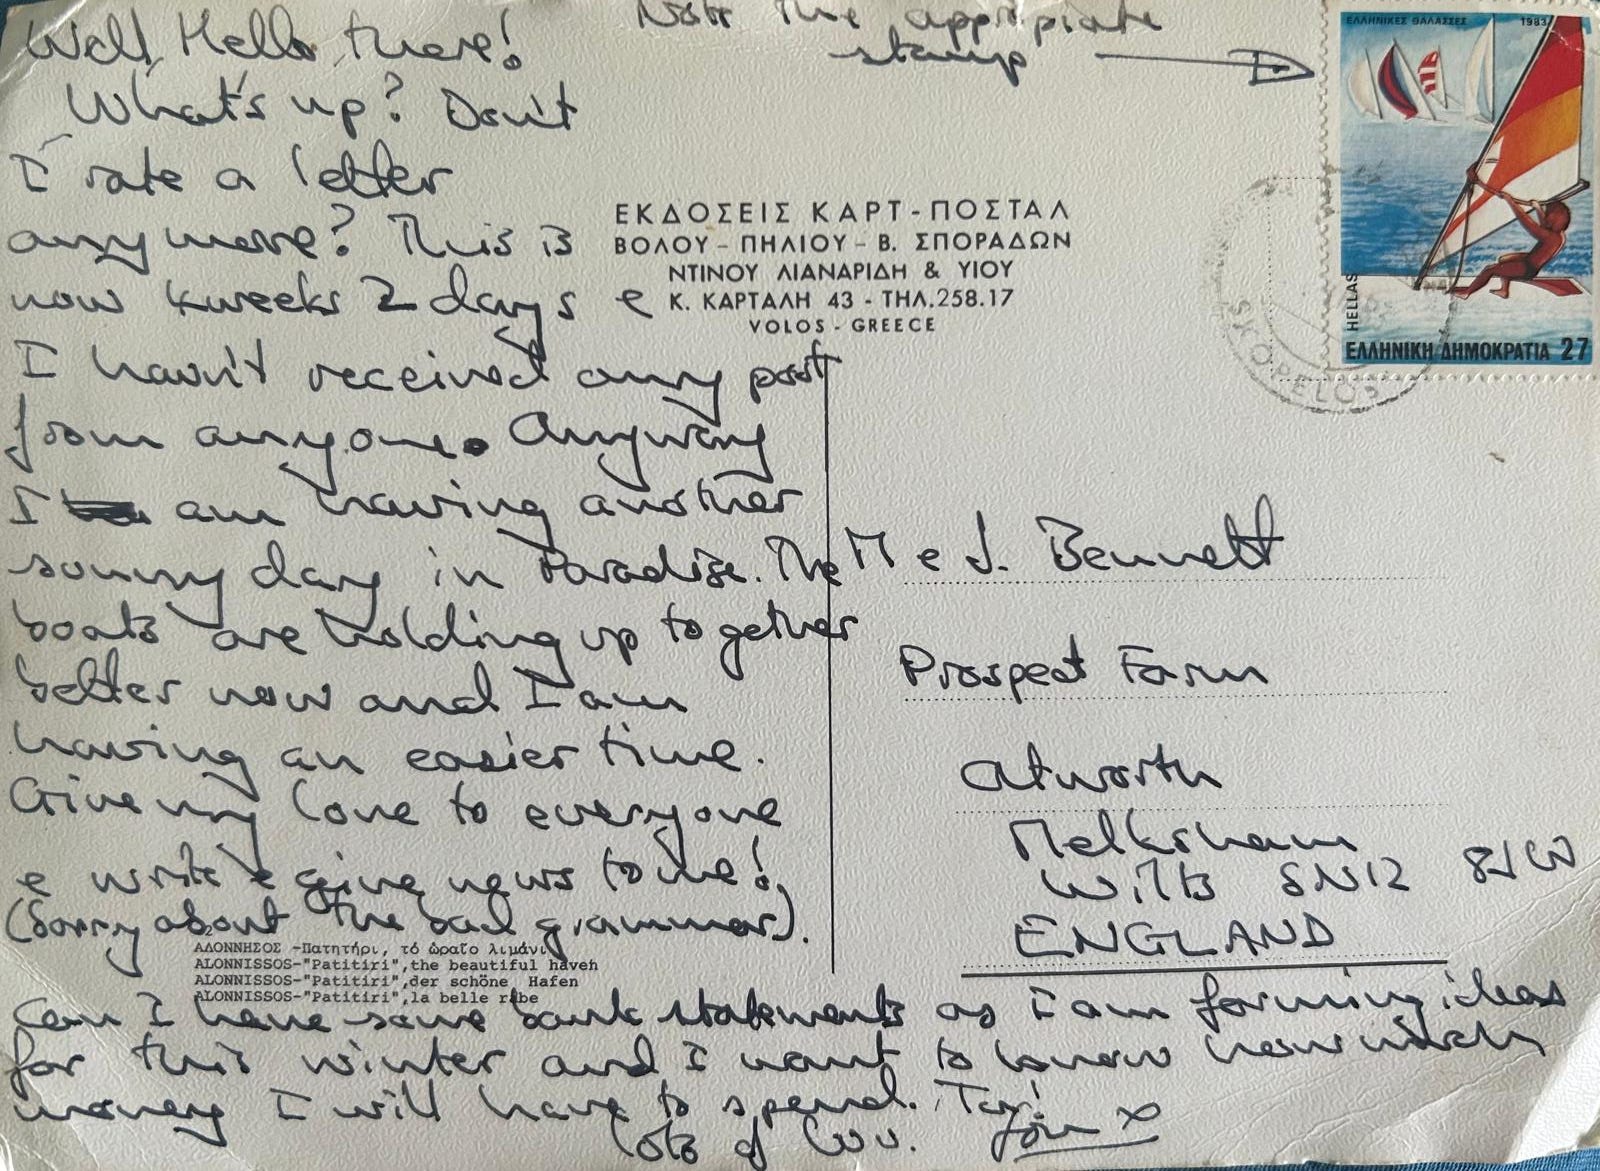 Well, Hello there!
What's up? Don't
I rate a letter
anymore? This is
now 4 weeks 2 days e
I havn't received any post
from anyone. Anyway
I am having another
sunny day in Paradise. The
boats are holding up together
better now and I am
having an easier time.
Give my love to everyone
e write e give news to me!
(Sorry about the bad grammar).
Can I have some bank statements as I am forming ideas
for this winter and I want to know how much
money I will have to spend.
Lots of luv. x
Note the appropiate
stamp
ΕΛΛΗΝΙΚΕΣ ΘΑΛΑΣΣΕΣ 1983
HELLAS
ΕΛΛΗΝΙΚΗ ΔΗΜΟΚΡΑΤΙΑ 27
SKOPELOS
ΕΚΔΟΣΕΙΣ ΚΑΡΤ-ΠΟΣΤΑΛ
ΒΟΛΟΥ - ΠΗΛΙΟΥ - Β. ΣΠΟΡΑΔΩΝ
ΝΤΙΝΟΥ ΛΙΑΝΑΡΙΔΗ & ΥΙΟΥ
Κ. ΚΑΡΤΑΛΗ 43 - ΤΗΛ.258.17
VOLOS - GREECE
M e J. Bennett
Prospect Farm
Atworth
Melksham
Wilts SN12
ENGLAND
ΑΛΟΝΝΗΣΟΣ -Πατητήρι, τό ὡραῖο λιμάνι
ALONNISSOS-"Patitiri",the beautiful haven
ALONNISSOS-"Patitiri",der schöne Hafen
ALONNISSOS-"Patitiri",la belle rabe